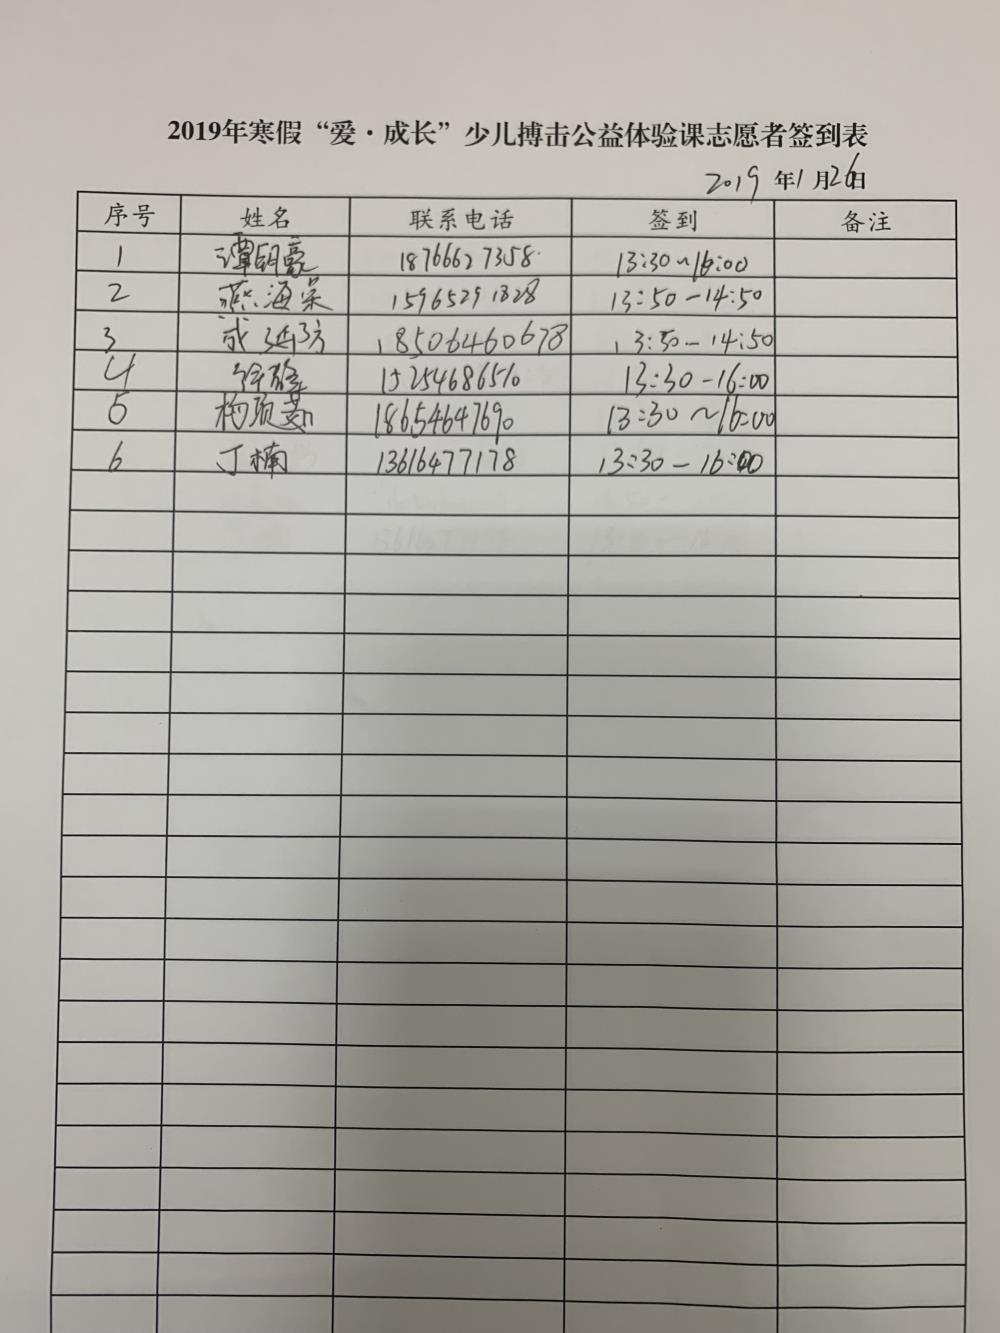 2019年寒假“爱·成长”少儿搏击公益体验课志愿者签到表
2019年1月26日
序号 姓名 联系电话 签到 备注
1 谭明豪 18766627358 13:30~16:00
2 燕海 15965291328 13:50-14:50
3 成延芳 18506460678 13:50-14:50
4 徐 15254686510 13:30-16:00
5 杨 18654647690 13:30~16:00
6 丁楠 13616477178 13:30-16:00